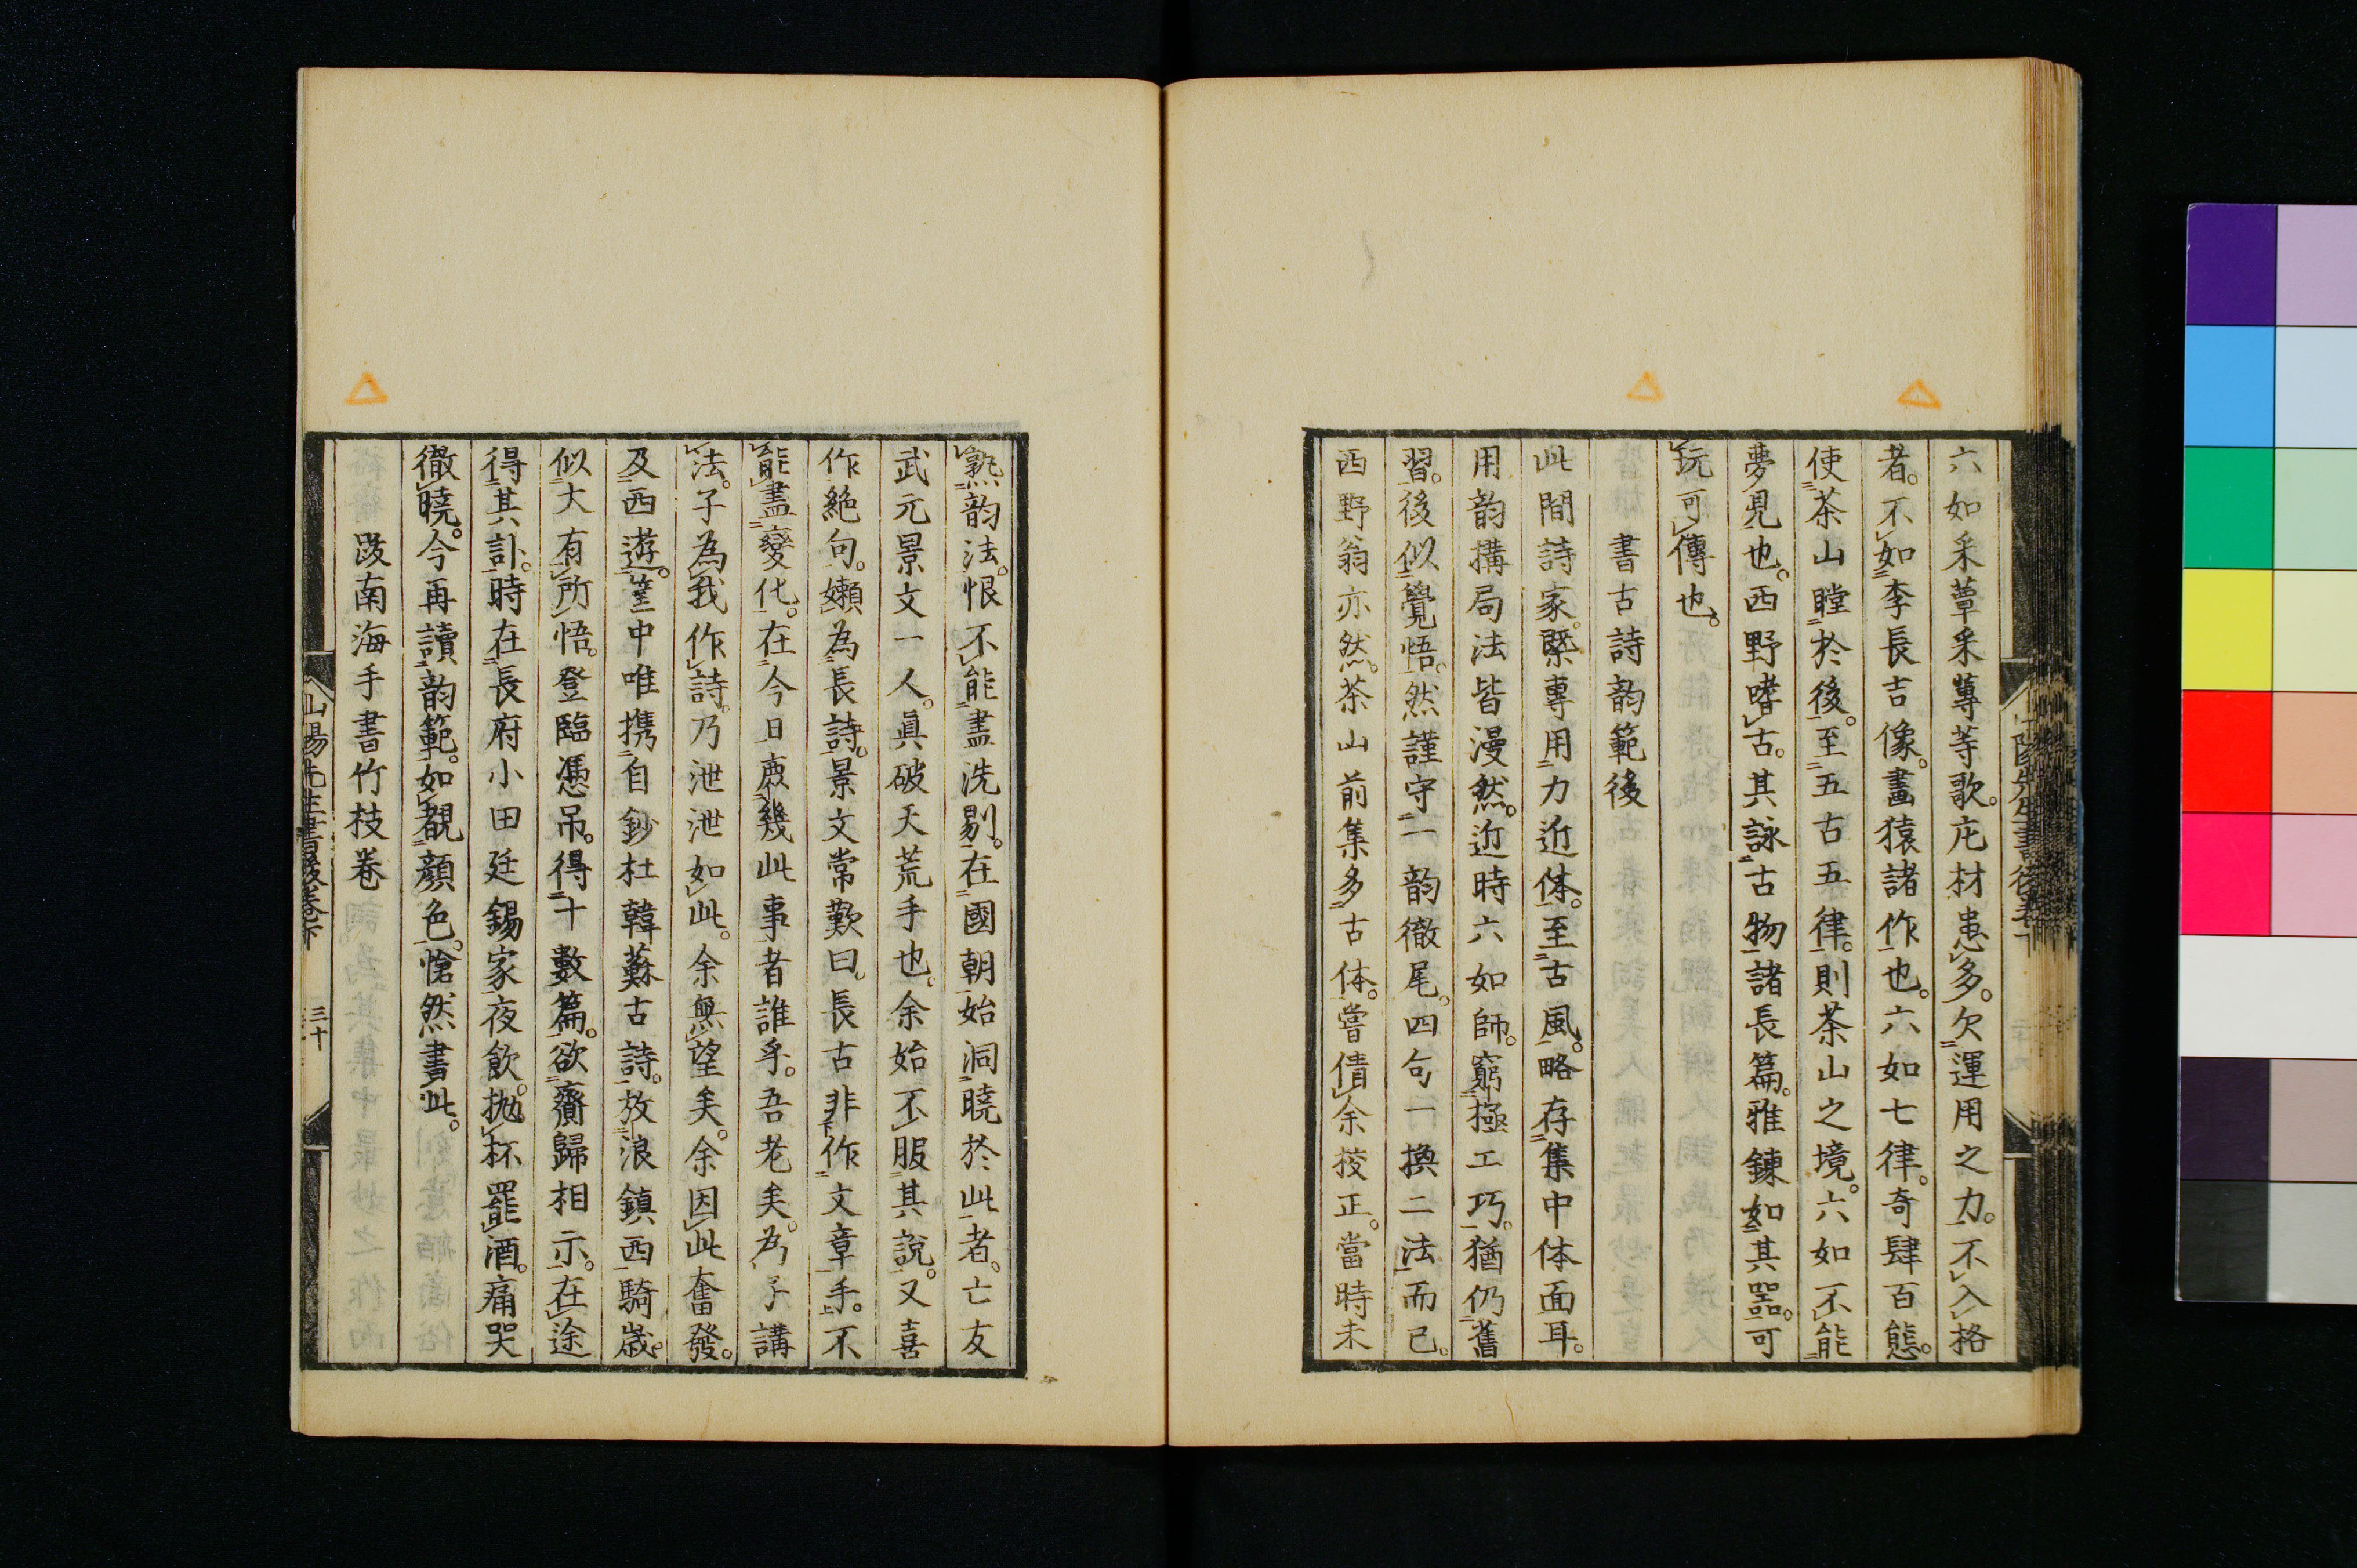 六如采蕈采蓴等歌。庀材患多。欠運用之力。不入格
者。不如李長吉像。畫猿諸作也。六如七律。奇肆百態。
使茶山瞠於後。至五古五律。則茶山之境。六如不能
夢見也。西野嗜古。其詠古物諸長篇。雅鍊如其器。可
玩可傳也。
書古詩韵範後
此間詩家。槩專用力近体。至古風。略存集中体面耳。
用韵搆局法皆漫然。近時六如師。窮極工巧。猶仍舊
習。後似覺悟。然謹守一韵徹尾。四句一換二法而已。
西野翁亦然。茶山前集多古体。嘗倩余挍正。當時未
熟韵法。恨不能盡洗剔。在國朝始洞曉於此者。亡友
武元景文一人。眞破天荒手也。余始不服其說。又喜
作絶句。嬾為長詩。景文常歎曰。長古非作文章手。不
能盡變化。在今日庶幾此事者誰乎。吾老矣。為子講
法。子為我作詩。乃泄泄如此。余無望矣。余因此奮發。
及西遊。篋中唯携自鈔杜韓蘇古詩。放浪鎮西騎歲。
似大有所悟。登臨憑吊。得十數篇。欲齎歸相示。在途
得其訃。時在長府小田廷錫家夜飲。抛杯罷酒。痛哭
徹曉。今再讀韵範。如覩顔色。愴然書此。
跋南海手書竹枝卷
山陽先生書後卷下
三十